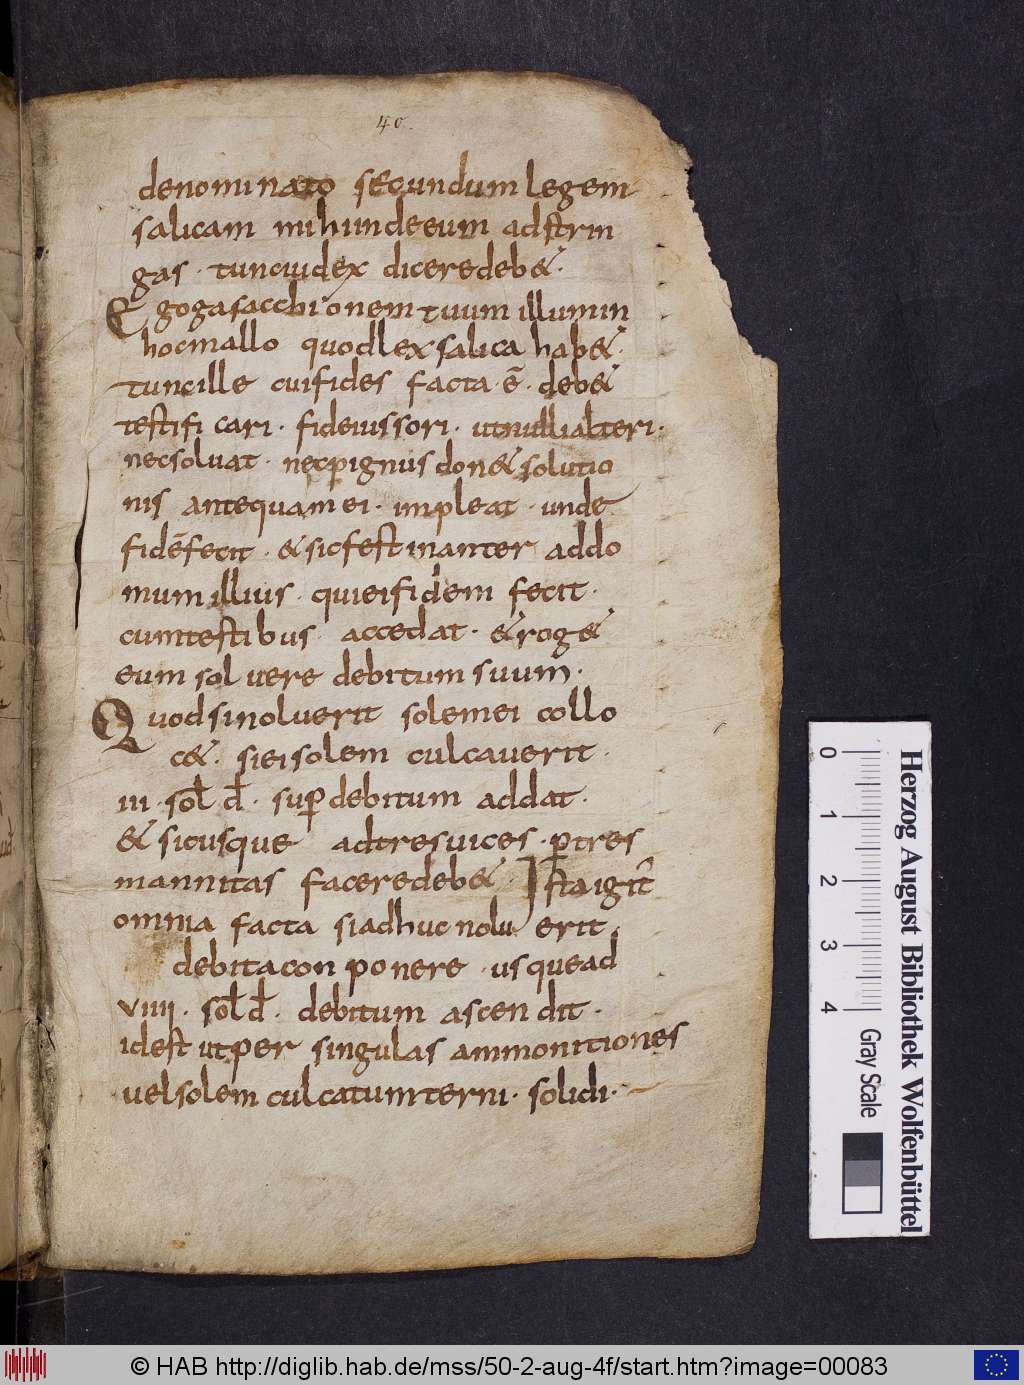 40.
denominato secundum legem
salicam mihi inde eum adstrin
gas · tunc iudex dicere debet ·
Ego gasacchionem tuum illum in
hoc mallo quod lex salica habet ·
tunc ille cui fides facta · ē · debet
testificari · fideiussori · ut nulli alteri ·
nec soluat · nec pignus donet solutio
nis antequam ei · impleat · unde
fidē fecit · et sic festinanter ad do
mum illius · qui ei fidem fecit ·
cum testibus · accedat · et roget
eum solvere debitum suum ·
Quod si noluerit solem ei collo
cet · si ei solem culcaverit ·
iii · sol d · sup debitum addat ·
et sic usque ad tres vices · p tres
mannitas facere debet · Ista igit
omnia facta si adhuc noluerit
debita conponere · usque ad
viiii · sol d · debitum ascendit ·
id est ut per singulas ammonitiones
vel solem culcatum terni · solidi ·
Herzog August Bibliothek Wolfenbüttel
0 1 2 3 4
Gray Scale
© HAB http://diglib.hab.de/mss/50-2-aug-4f/start.htm?image=00083